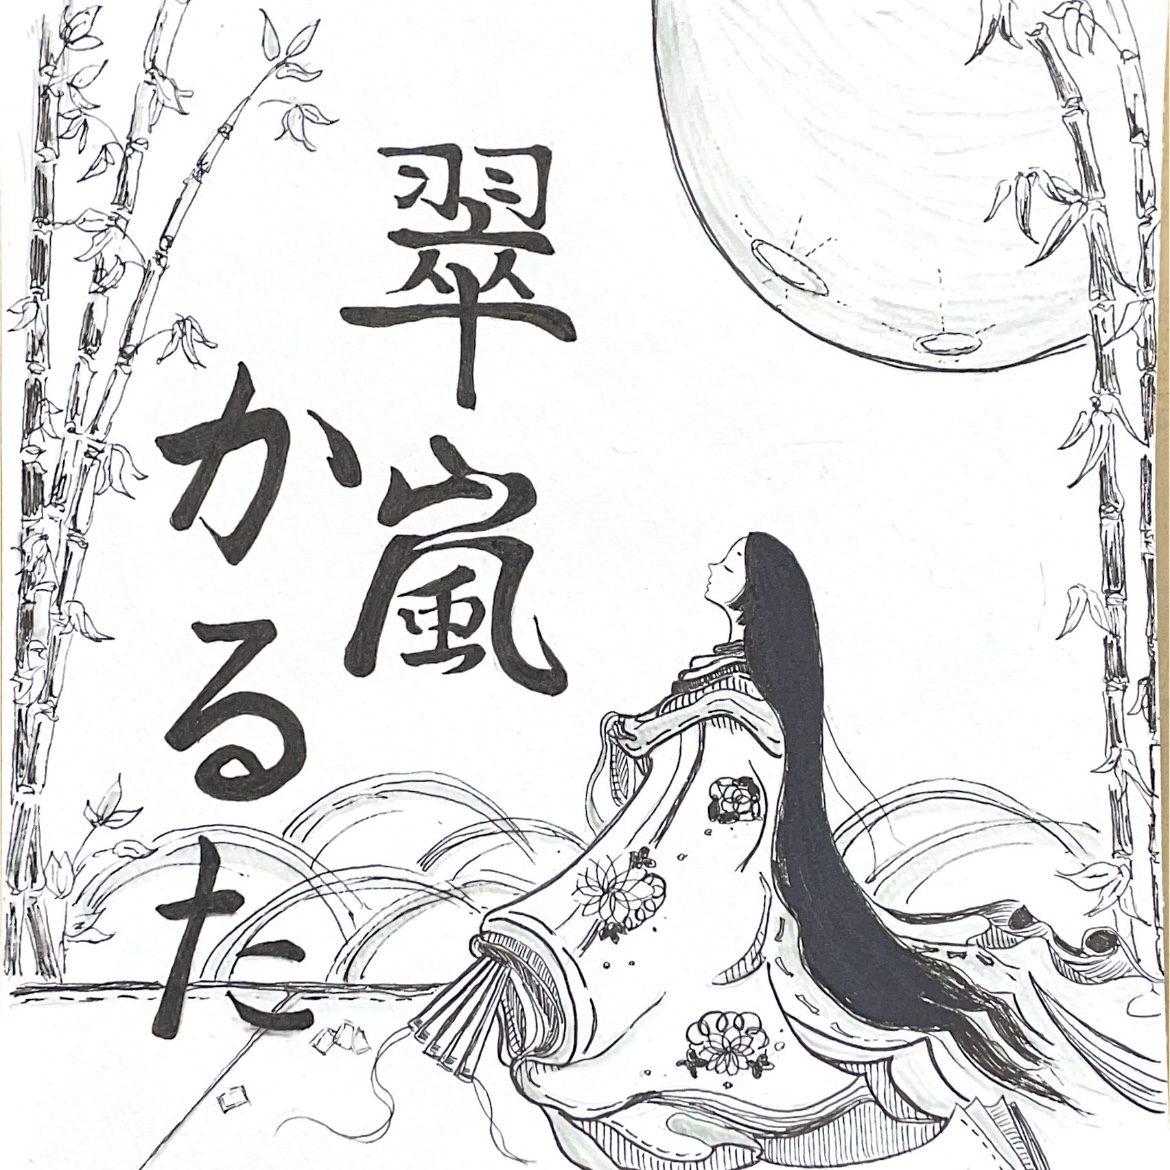 翠嵐
かるた